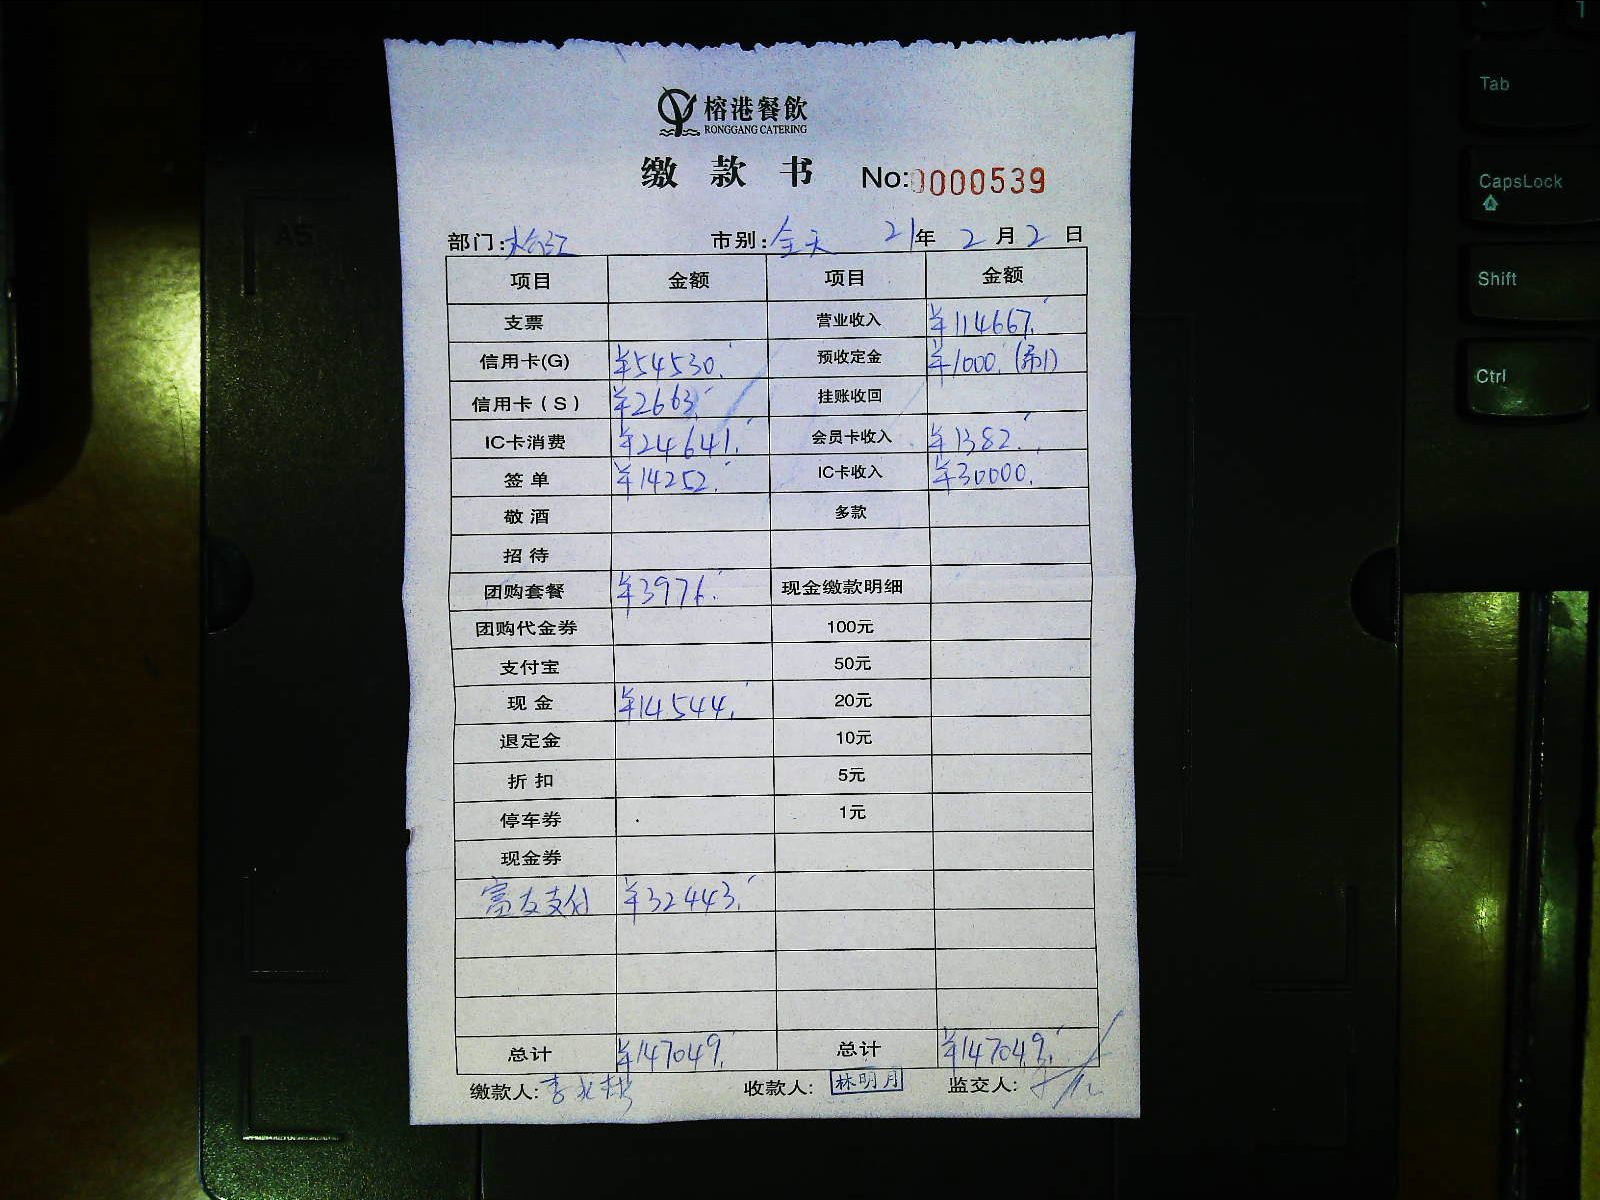 榕港餐飲
RONGGANG CATERING
缴 款 书 No:0000539
部门: 市别:全天 21年 2月 2日
项目 金额 项目 金额
支票 营业收入 ¥114667.
信用卡(G) ¥54530. 预收定金 ¥1000.
信用卡(S) ¥2663. 挂账收回
IC卡消费 ¥24641. 会员卡收入 ¥1382.
签单 ¥14252. IC卡收入 ¥30000.
敬酒 多款
招待
团购套餐 ¥3976. 现金缴款明细
团购代金券 100元
支付宝 50元
现金 ¥14544. 20元
退定金 10元
折扣 5元
停车券 1元
现金券
富友支付 ¥32443.
总计 ¥147049. 总计 ¥147049.
缴款人: 收款人: 林明月 监交人:
A5
Tab
CapsLock
Shift
Ctrl